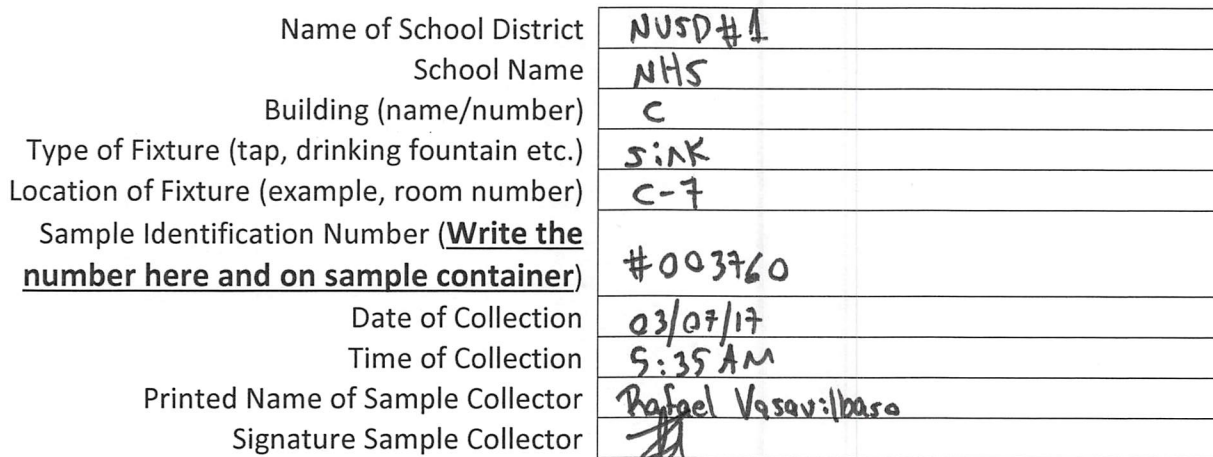 Name of School District NUSD#1
School Name NHS
Building (name/number) C
Type of Fixture (tap, drinking fountain etc.) sink
Location of Fixture (example, room number) C-7
Sample Identification Number (Write the
number here and on sample container) #003760
Date of Collection 03/07/17
Time of Collection 5:35 AM
Printed Name of Sample Collector Rafael
Signature Sample Collector